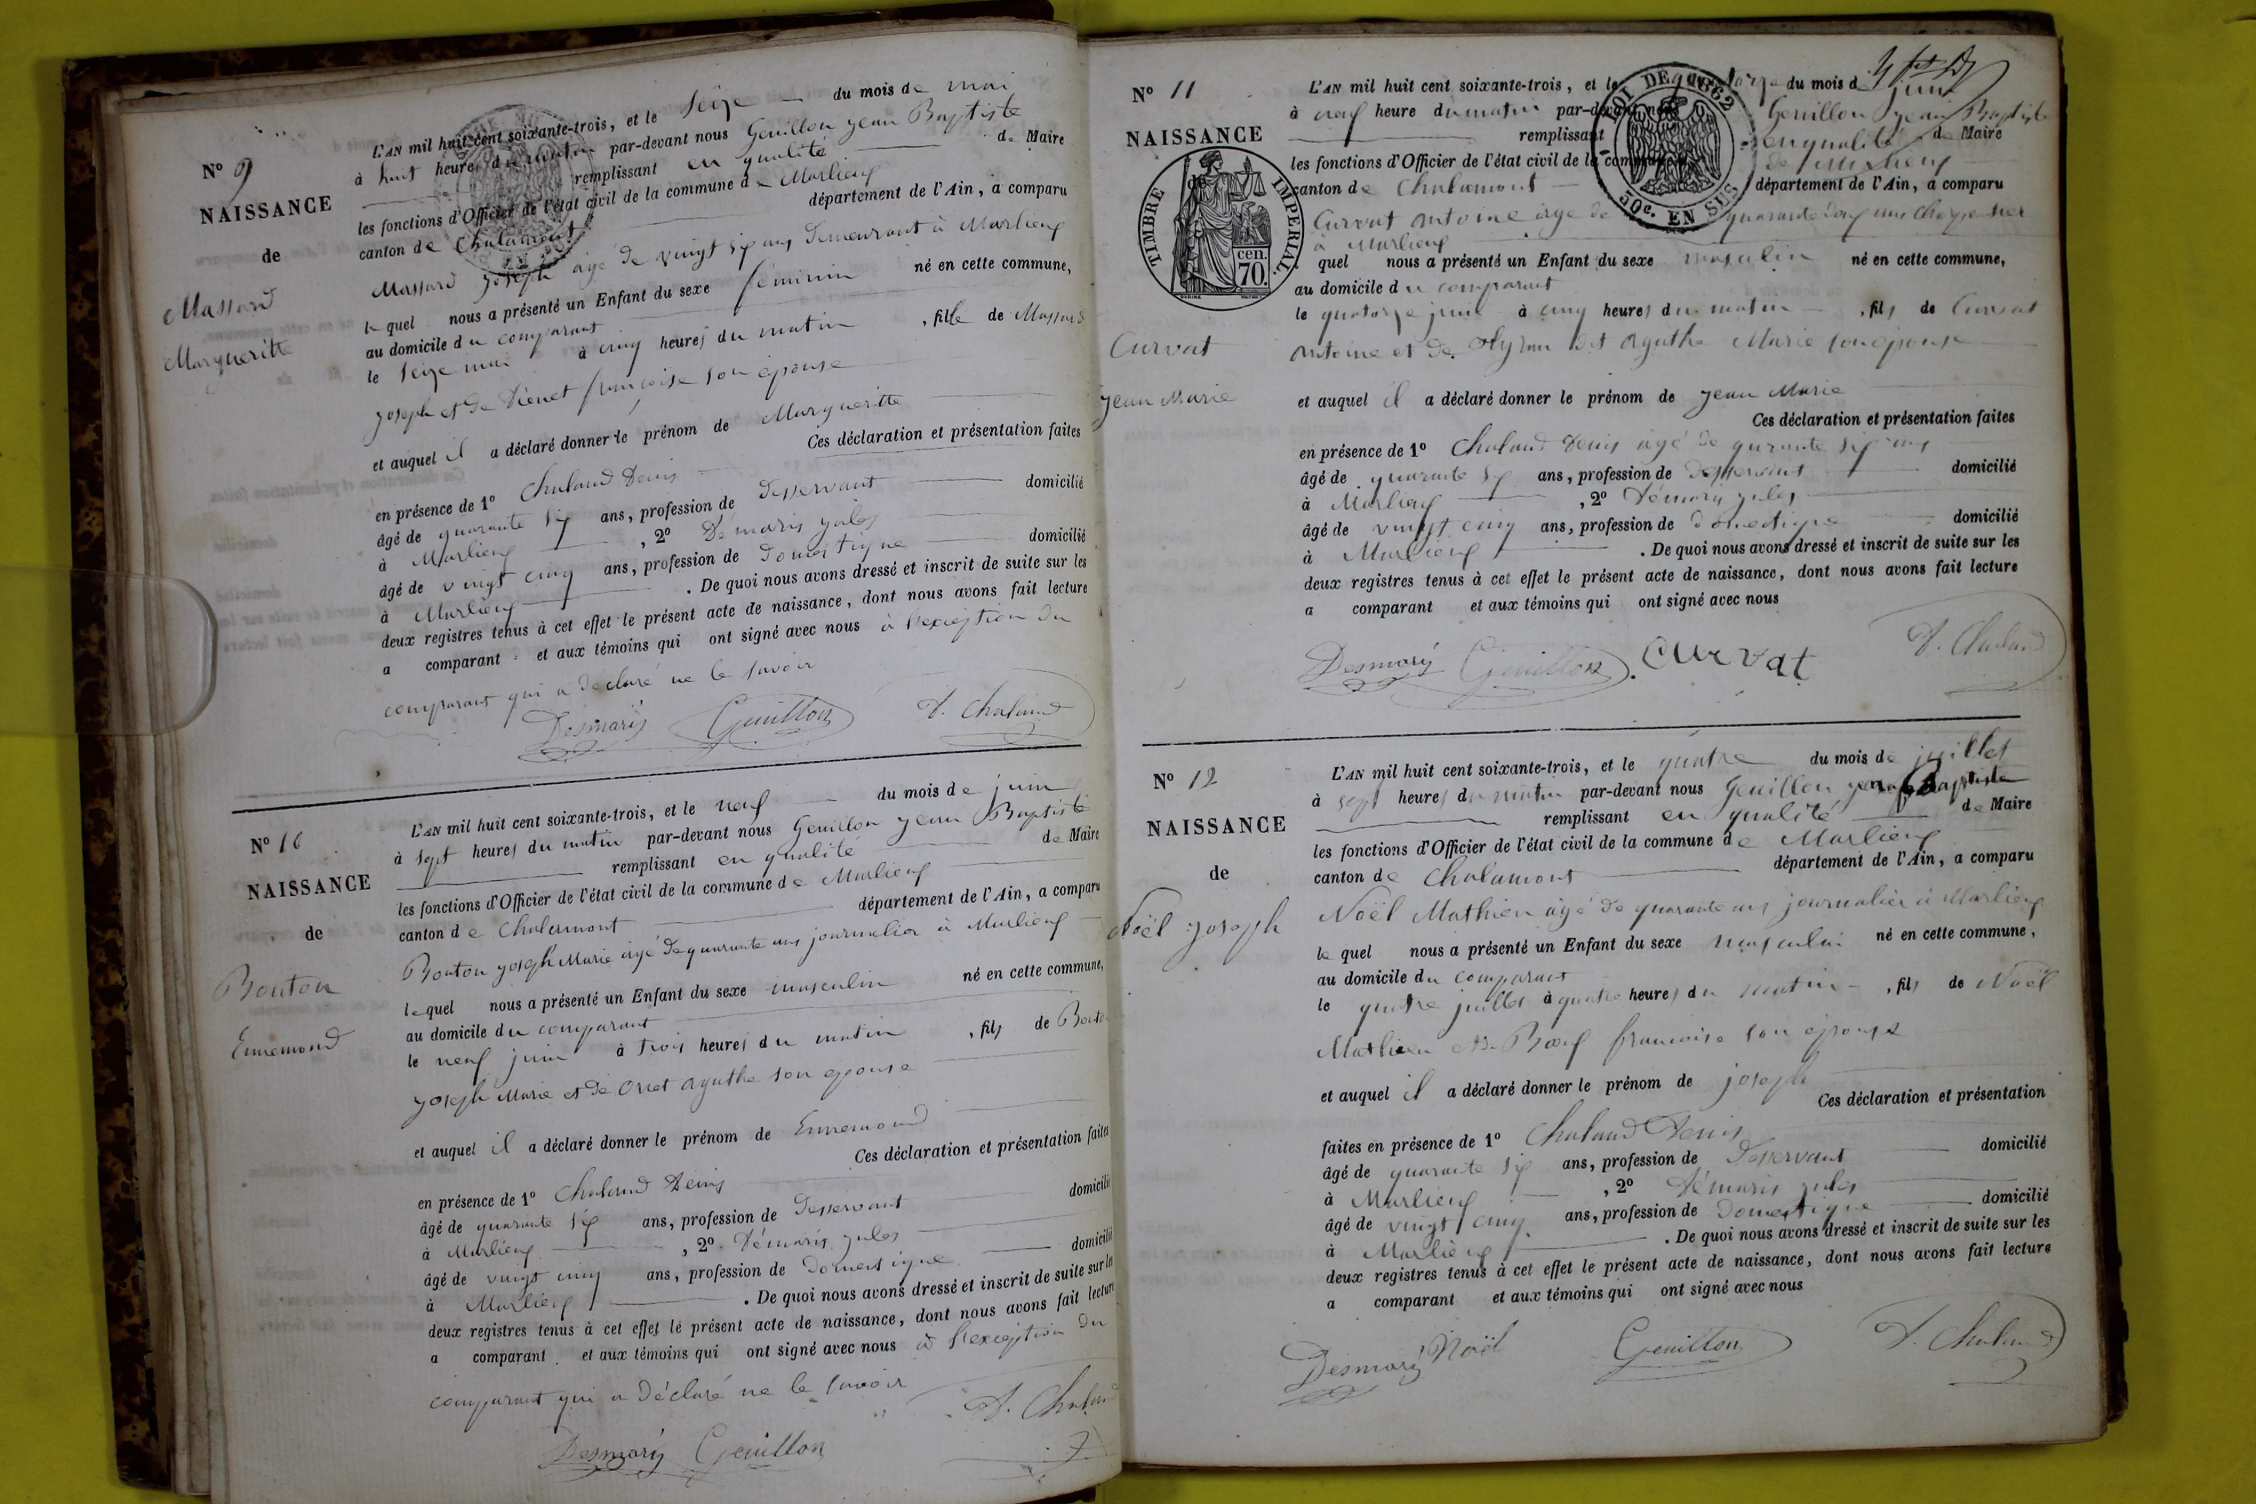 N° 9
NAISSANCE
de
Massard
Margueritte
L'AN mil huit cent soixante-trois, et le seize du mois de mai
à huit heures du matin par-devant nous Genillon jean Baptiste
remplissant en qualité de Maire
les fonctions d'Officier de l'état civil de la commune de Marlieux
canton de Chalamont département de l'Ain, a comparu
Massard joseph âgé de vingt six ans demeurant à Marlieux
lequel nous a présenté un Enfant du sexe féminin né en cette commune,
au domicile du comparant
le seize mai à cinq heures du matin, fille de Massard
joseph et de françoise son épouse
et auquel il a déclaré donner le prénom de Margueritte
Ces déclaration et présentation faites
en présence de 1° Chaland Denis
âgé de quarante six ans, profession de desservant domicilié
à Marlieux, 2° Démaris jules
âgé de vingt cinq ans, profession de domestique domicilié
à Marlieux. De quoi nous avons dressé et inscrit de suite sur les
deux registres tenus à cet effet le présent acte de naissance, dont nous avons fait lecture
a comparant et aux témoins qui ont signé avec nous à l'exception du
comparant qui a déclaré ne le savoir
Desmaris Genillon D. Chaland
N° 10
NAISSANCE
de
Bouton
Ennemond
L'AN mil huit cent soixante-trois, et le neuf du mois de juin
à sept heures du matin par-devant nous Genillon jean Baptiste
remplissant en qualité de Maire
les fonctions d'Officier de l'état civil de la commune de Marlieux
canton de Chalamont département de l'Ain, a comparu
Bouton joseph Marie âgé de quarante ans journalier à Marlieux
lequel nous a présenté un Enfant du sexe masculin né en cette commune,
au domicile du comparant
le neuf juin à trois heures du matin, fils de Bouton
joseph Marie et de agathe son épouse
et auquel il a déclaré donner le prénom de Ennemond
Ces déclaration et présentation faites
en présence de 1° Chaland Denis
âgé de quarante six ans, profession de desservant domicilié
à Marlieux, 2° Démaris jules
âgé de vingt cinq ans, profession de domestique domicilié
à Marlieux. De quoi nous avons dressé et inscrit de suite sur les
deux registres tenus à cet effet le présent acte de naissance, dont nous avons fait lecture
a comparant et aux témoins qui ont signé avec nous à l'exception du
comparant qui a déclaré ne le savoir
D. Chaland
Desmaris Genillon
N° 11
NAISSANCE
de
TIMBRE IMPERIAL
cen.
70.
Curvat
jean Marie
LOI DE 1862
50c. EN SUS
L'AN mil huit cent soixante-trois, et le quatorze du mois de juin
à neuf heure du matin par-devant nous Genillon jean Baptiste
remplissant en qualité de Maire
les fonctions d'Officier de l'état civil de la commune de Marlieux
canton de Chalamont département de l'Ain, a comparu
Curvat antoine âgé de quarante deux ans charpentier
à Marlieux
quel nous a présenté un Enfant du sexe masculin né en cette commune,
au domicile du comparant
le quatorze juin à cinq heures du matin, fils de Curvat
antoine et de dit agathe Marie son épouse
et auquel il a déclaré donner le prénom de jean Marie
Ces déclaration et présentation faites
en présence de 1° Chaland Denis âgé de quarante six ans
âgé de quarante six ans, profession de desservant domicilié
à Marlieux, 2° Démaris jules
âgé de vingt cinq ans, profession de domestique domicilié
à Marlieux. De quoi nous avons dressé et inscrit de suite sur les
deux registres tenus à cet effet le présent acte de naissance, dont nous avons fait lecture
a comparant et aux témoins qui ont signé avec nous
Desmaris Genillon Curvat D. Chaland
N° 12
NAISSANCE
de
Noël joseph
L'AN mil huit cent soixante-trois, et le quatre du mois de juillet
à sept heures du matin par-devant nous Genillon jean Baptiste
remplissant en qualité de Maire
les fonctions d'Officier de l'état civil de la commune de Marlieux
canton de Chalamont département de l'Ain, a comparu
Noël Mathieu âgé de quarante ans journalier à Marlieux
lequel nous a présenté un Enfant du sexe masculin né en cette commune,
au domicile du comparant
le quatre juillet à quatre heures du matin, fils de Noël
Mathieu et de Bœuf francoise son épouse
et auquel il a déclaré donner le prénom de joseph
Ces déclaration et présentation
faites en présence de 1° Chaland Denis
âgé de quarante six ans, profession de desservant domicilié
à Marlieux, 2° Démaris jules
âgé de vingt cinq ans, profession de domestique domicilié
à Marlieux. De quoi nous avons dressé et inscrit de suite sur les
deux registres tenus à cet effet le présent acte de naissance, dont nous avons fait lecture
a comparant et aux témoins qui ont signé avec nous
Desmaris Noël Genillon D. Chaland